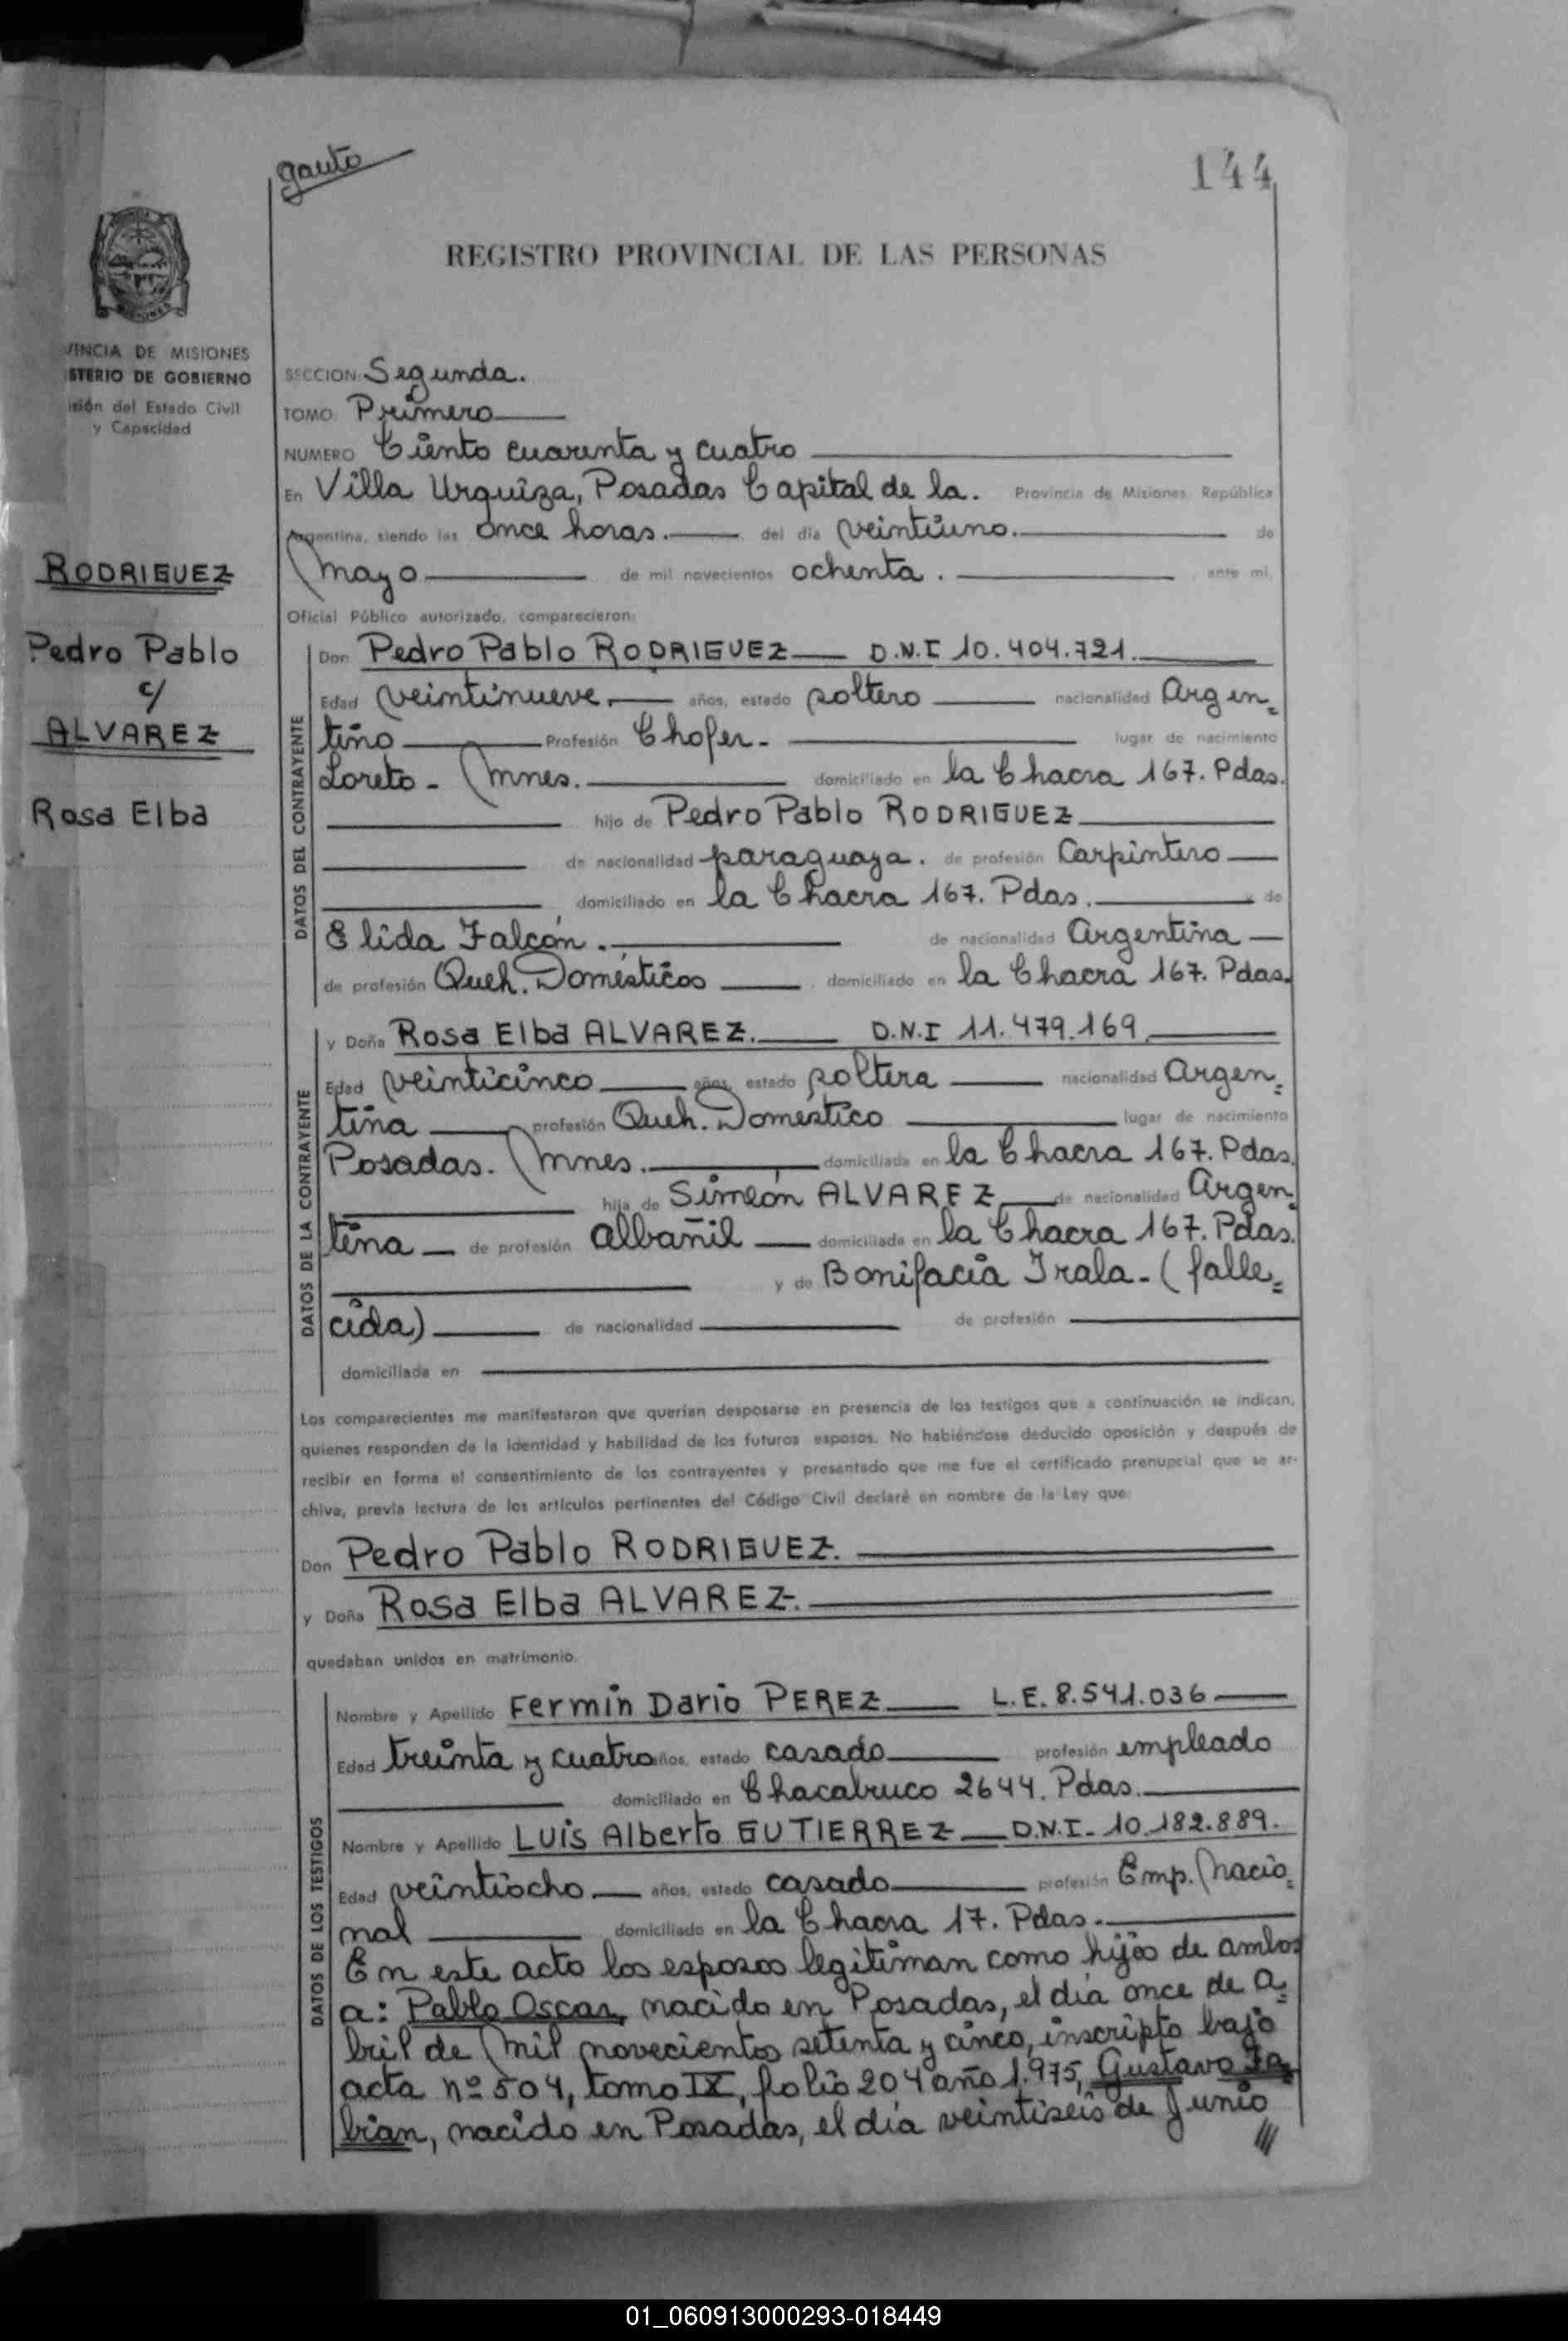 gauto
144
REGISTRO PROVINCIAL DE LAS PERSONAS
VINCIA DE MISIONES
STERIO DE GOBIERNO
isión del Estado Civil
y Capacidad
RODRIGUEZ
Pedro Pablo
c/
ALVAREZ
Rosa Elba
SECCION: Segunda.
TOMO: Primero
NUMERO Ciento cuarenta y cuatro
En Villa Urquiza, Posadas Capital de la. Provincia de Misiones, República
Argentina, siendo las once horas. del día veintiuno. de
Mayo de mil novecientos ochenta. ante mí,
Oficial Público autorizado, comparecieron:
DATOS DEL CONTRAYENTE
Don Pedro Pablo RODRIGUEZ D.N.I 10.404.721.
Edad veintinueve, años, estado soltero nacionalidad Argen=
tino Profesión Chofer- lugar de nacimiento
Loreto - Mnes. domiciliado en la Chacra 167. Pdas.
hijo de Pedro Pablo RODRIGUEZ
de nacionalidad paraguaya. de profesión Carpintero
domiciliado en la Chacra 167. Pdas. y de
Elida Falcón. de nacionalidad Argentina
de profesión Queh. Domésticos domiciliado en la Chacra 167. Pdas.
DATOS DE LA CONTRAYENTE
y Doña Rosa Elba ALVAREZ. D.N.I 11.479.169
Edad veinticinco años, estado soltera nacionalidad Argen=
tina profesión Queh. Doméstico lugar de nacimiento
Posadas. Mnes. domiciliada en la Chacra 167. Pdas.
hija de Simeón ALVAREZ de nacionalidad Argen=
tina de profesión albañil domiciliada en la Chacra 167. Pdas.
y de Bonifacia Irala - (falle=
cida) de nacionalidad de profesión
domiciliada en
Los comparecientes me manifestaron que querían desposarse en presencia de los testigos que a continuación se indican,
quienes responden de la identidad y habilidad de los futuros esposos. No habiéndose deducido oposición y después de
recibir en forma el consentimiento de los contrayentes y presentado que me fue el certificado prenupcial que se ar-
chiva, previa lectura de los artículos pertinentes del Código Civil declaré en nombre de la Ley que:
Don Pedro Pablo RODRIGUEZ.
y Doña Rosa Elba ALVAREZ.
quedaban unidos en matrimonio.
DATOS DE LOS TESTIGOS
Nombre y Apellido Fermin Dario PEREZ L.E. 8.541.036
Edad treinta y cuatro años, estado casado profesión empleado
domiciliado en Chacabuco 2644. Pdas.
Nombre y Apellido Luis Alberto GUTIERREZ D.N.I- 10.182.889.
Edad veintiocho años, estado casado profesión Emp. Nacio=
nal domiciliado en la Chacra 17. Pdas.
En este acto los esposos legitiman como hijos de ambos
a: Pablo Oscar, nacido en Posadas, el día once de A=
bril de Mil novecientos setenta y cinco, inscripto bajo
acta nº 504, tomo IX, folio 204 año 1.975, Gustavo Fa=
bian, nacido en Posadas, el día veintiseis de Junio
///
01_060913000293-018449